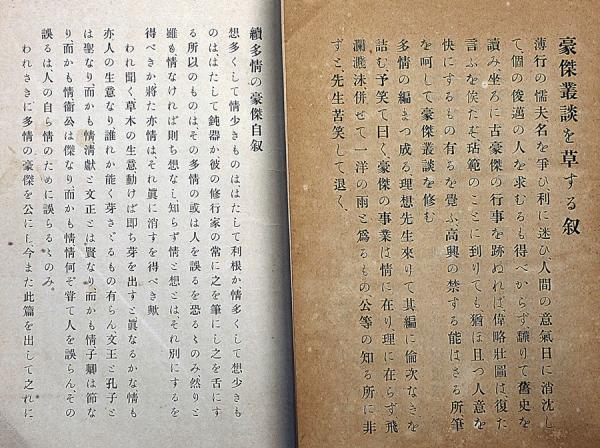 豪傑叢談を草する叙
薄行の懦夫名を爭ひ利に迷ひ、人間の意氣日に消沈し
て、個の俊邁の人を求むるも得べからず、驢りて舊史を
讀み坐ろに古豪傑の行事を跡ぬれば、偉略壯圖は復た
言ふを俟たず、玷範のことに到りても猶ほ且つ人意を
快にするもの有るを覺ふ、高興の禁する能はざる所、筆
を呵して豪傑叢談を修む
多情の編まつ成る、理想先生來りて其編に倫次なきを
詰む、予笑て曰く、豪傑の事業は情に在り、理に在らず、飛
瀾濺沫併せて一洋の雨と爲るもの公等の知る所に非
ずと、先生苦笑して退く、
續多情の豪傑自叙
想多くして情少きものは、はたして利根か、情多くして想少きも
のははたして鈍器か、彼の修行家の常に之を筆にし之を舌にす
る所以のものは、その多情の或は人を誤るを恐るゝのみ、然りと
雖も情なければ則ち想なし、知らず情と想とは、それ別にするを
得べきか、將た亦情は、それ眞に消すを得べき歟
われ聞く、草木の生意動けば即ち芽を出すと、眞なるかな、情も
亦人の生意なり、誰れか能く芽さゞるもの有らん、文王と孔子と
は聖なり、而かも情、淸獻と文正とは賢なり、而かも情、子卿は節な
り、而かも情、衞公は傑なり、而かも情、情何ぞ甞て人を誤らん、その
誤るは人の自ら情のために誤らるゝのみ。
われさきに多情の豪傑を公にし、今また此篇を出して之れに